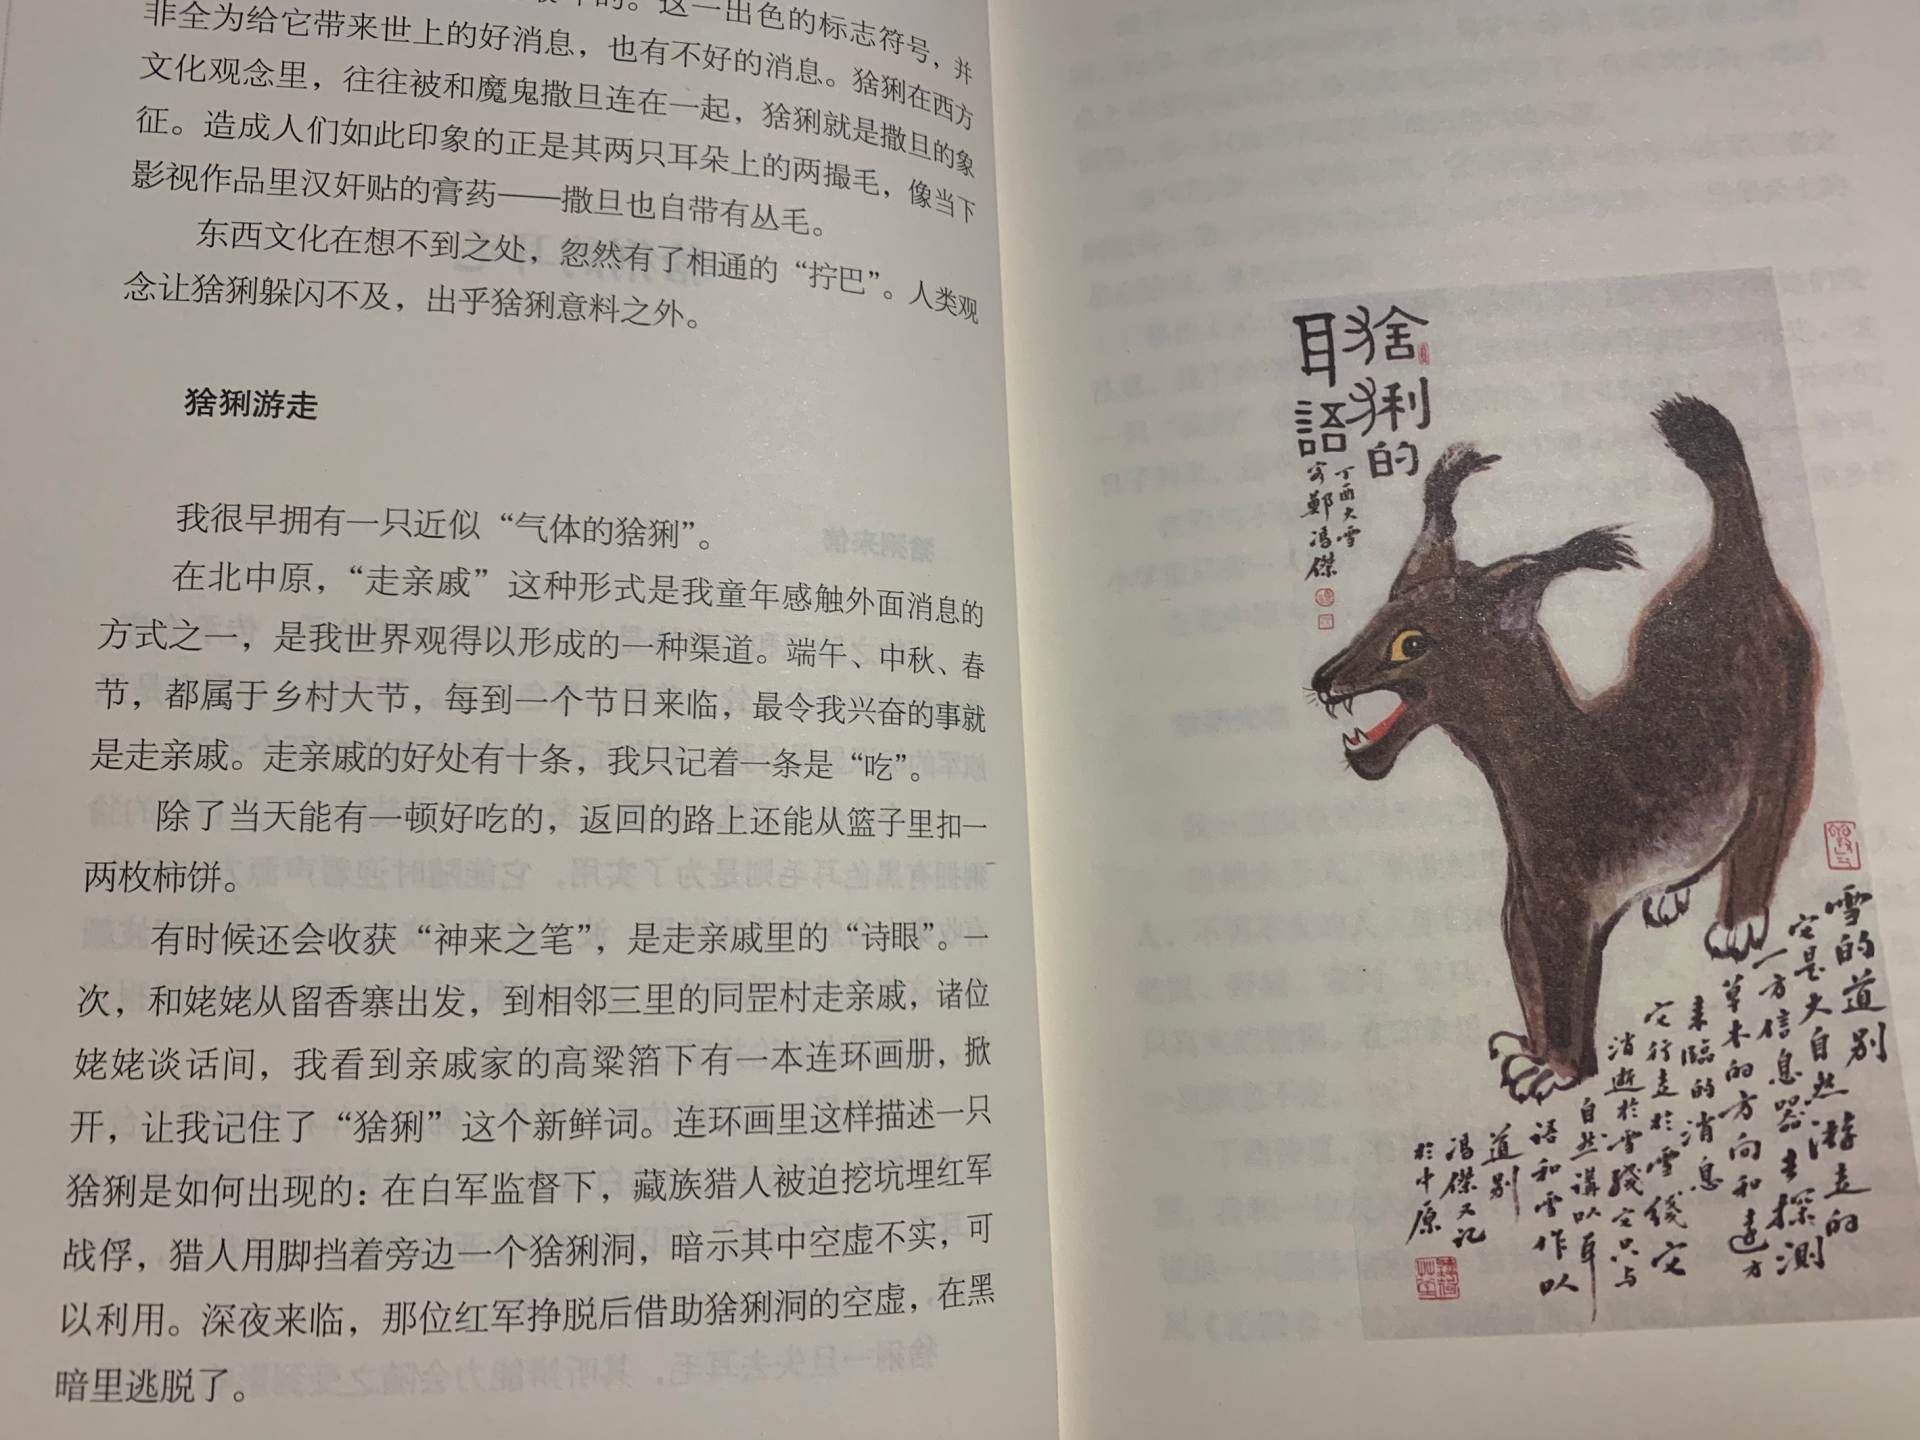 的。这一出色的标志符号，并
非全为给它带来世上的好消息，也有不好的消息。猞猁在西方
文化观念里，往往被和魔鬼撒旦连在一起，猞猁就是撒旦的象
征。造成人们如此印象的正是其两只耳朵上的两撮毛，像当下
影视作品里汉奸贴的膏药——撒旦也自带有丛毛。
东西文化在想不到之处，忽然有了相通的“拧巴”。人类观
念让猞猁躲闪不及，出乎猞猁意料之外。
猞猁游走
我很早拥有一只近似“气体的猞猁”。
在北中原，“走亲戚”这种形式是我童年感触外面消息的
方式之一，是我世界观得以形成的一种渠道。端午、中秋、春
节，都属于乡村大节，每到一个节日来临，最令我兴奋的事就
是走亲戚。走亲戚的好处有十条，我只记着一条是“吃”。
除了当天能有一顿好吃的，返回的路上还能从篮子里扣一
两枚柿饼。
有时候还会收获“神来之笔”，是走亲戚里的“诗眼”。一
次，和姥姥从留香寨出发，到相邻三里的同罡村走亲戚，诸位
姥姥谈话间，我看到亲戚家的高粱箔下有一本连环画册，掀
开，让我记住了“猞猁”这个新鲜词。连环画里这样描述一只
猞猁是如何出现的：在白军监督下，藏族猎人被迫挖坑埋红军
战俘，猎人用脚挡着旁边一个猞猁洞，暗示其中空虚不实，可
以利用。深夜来临，那位红军挣脱后借助猞猁洞的空虚，在黑
暗里逃脱了。
猞猁的
耳語
丁酉大雪
客鄭馮傑
雪的道别
它是大自然游走的
一方信息器去探测
草木的方向和遠方
来臨的消息
它行走於雪线它
消逝於雪綫它只与
自然講以耳
語和雪作以
道别
馮傑又记
於中原